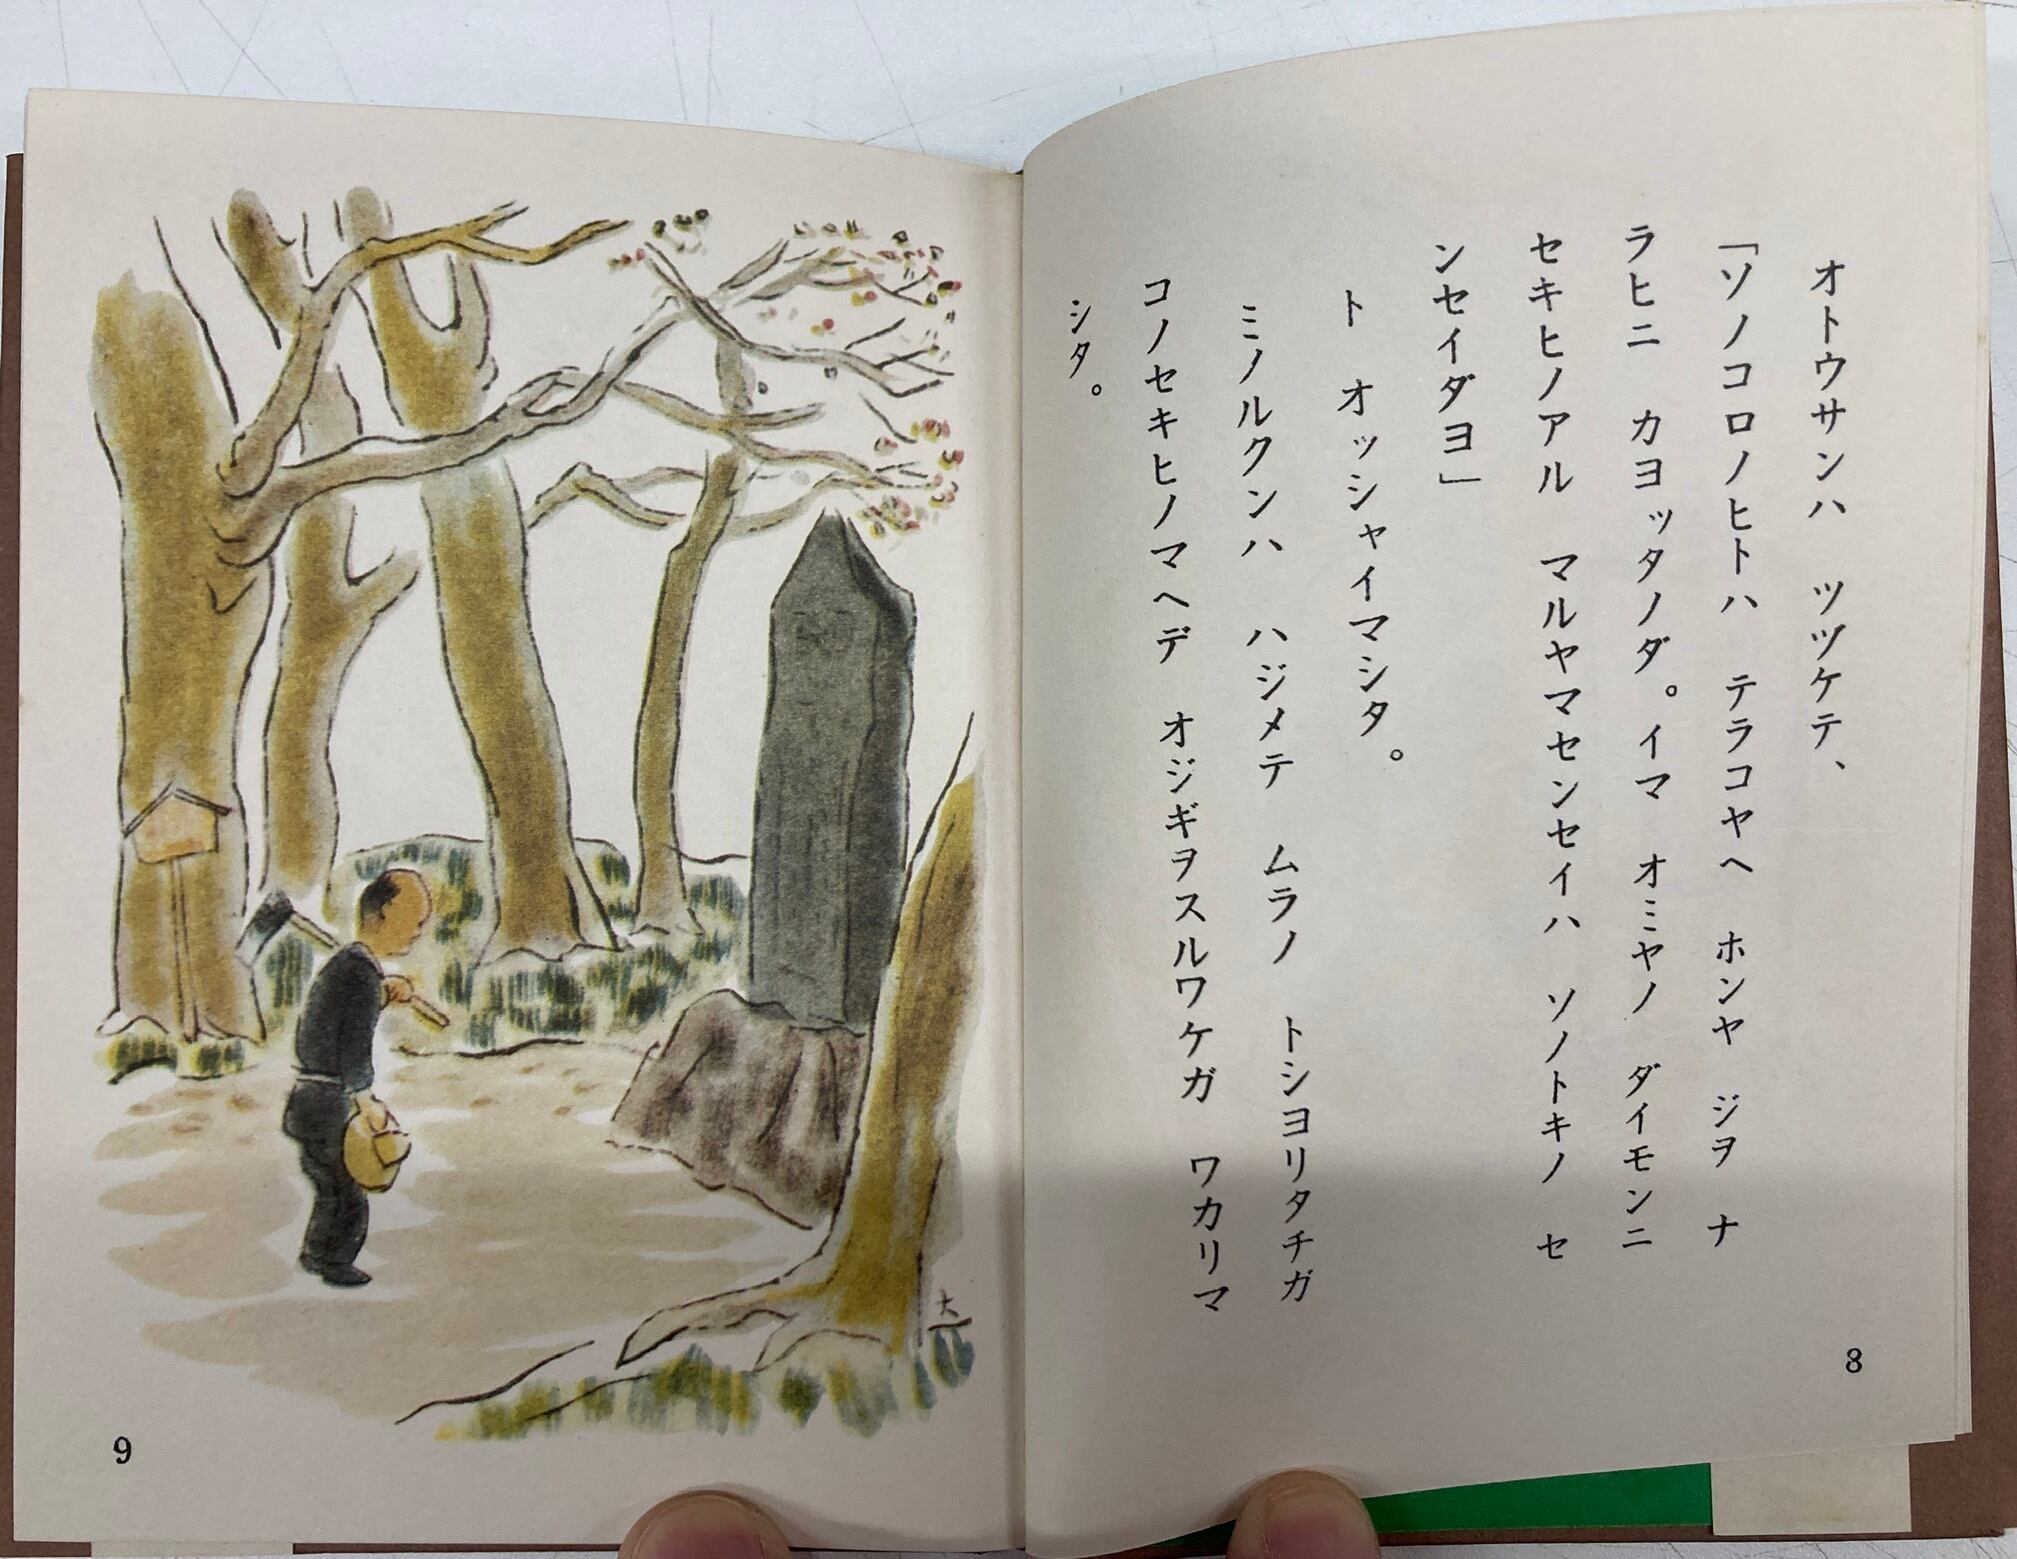 オトウサンハ ツヅケテ、
「ソノコロノヒトハ テラコヤヘ ホンヤ ジヲ ナ
ラヒニ カヨッタノダ。イマ オミヤノ ダイモンニ
セキヒノアル マルヤマセンセイハ ソノトキノ セ
ンセイダヨ」
ト オッシャイマシタ。
ミノルクンハ ハジメテ ムラノ トシヨリタチガ
コノセキヒノマヘデ オジギヲスルワケガ ワカリマ
シタ。
8
大
9